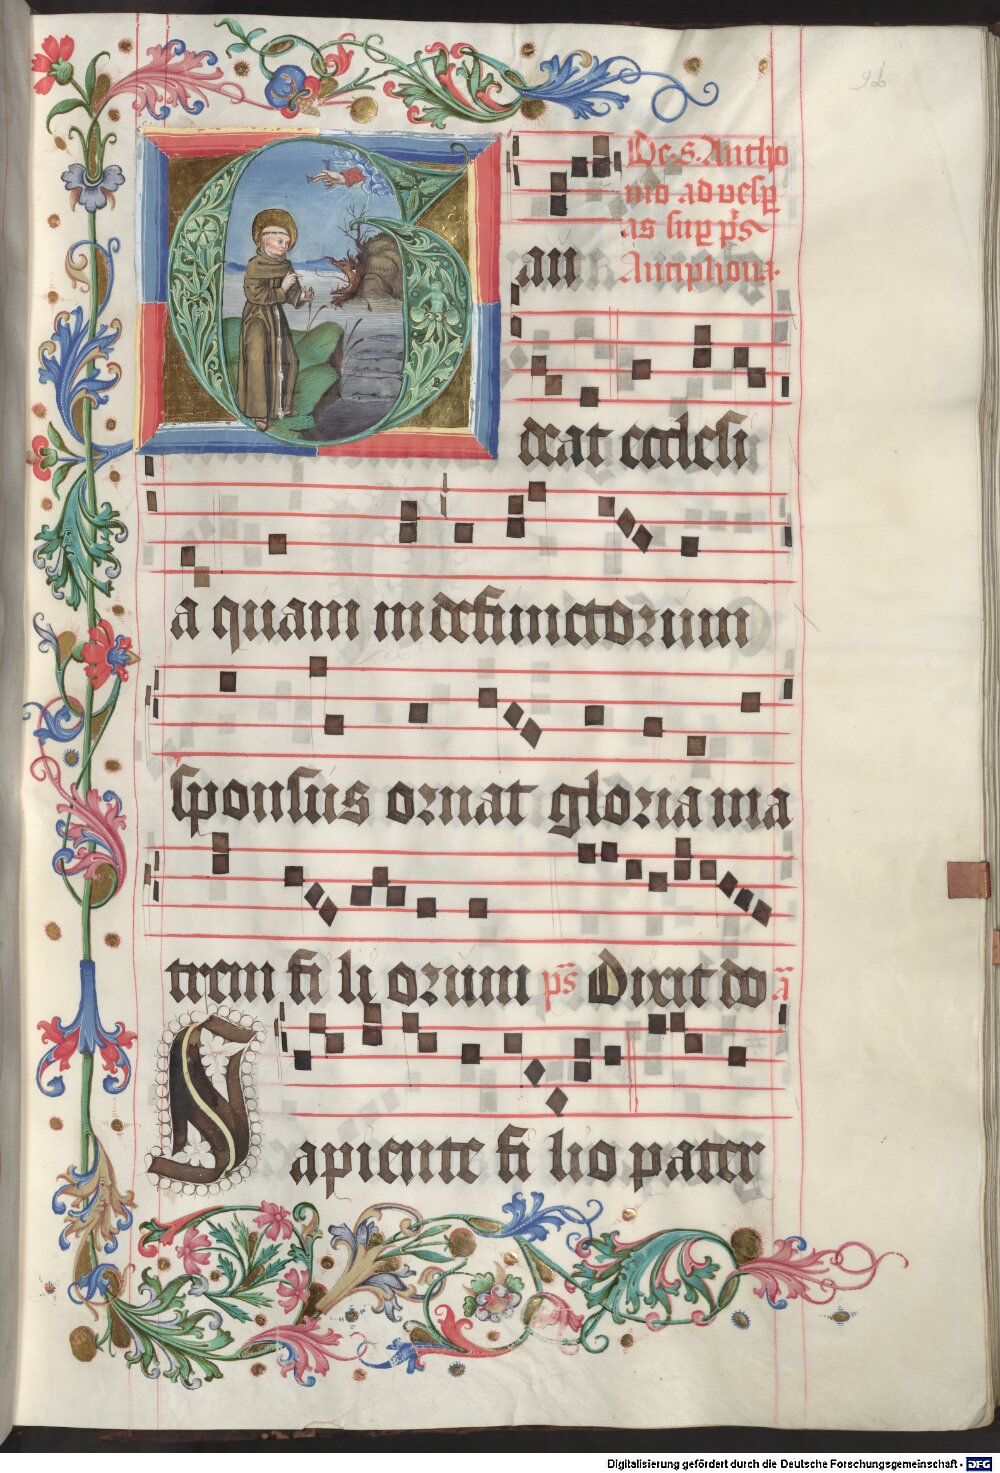 96
De. S. Antho
nio ad vesp̲
as sup̲ ps̄
Antiphona.
Gau
deat ecclesi
a quam in defunctorum
sponsus ornat gloria ma
trem fi li orum ps̄ Dixit do ā
Sapiente fi lio pater
Digitalisierung gefördert durch die Deutsche Forschungsgemeinschaft - DFG